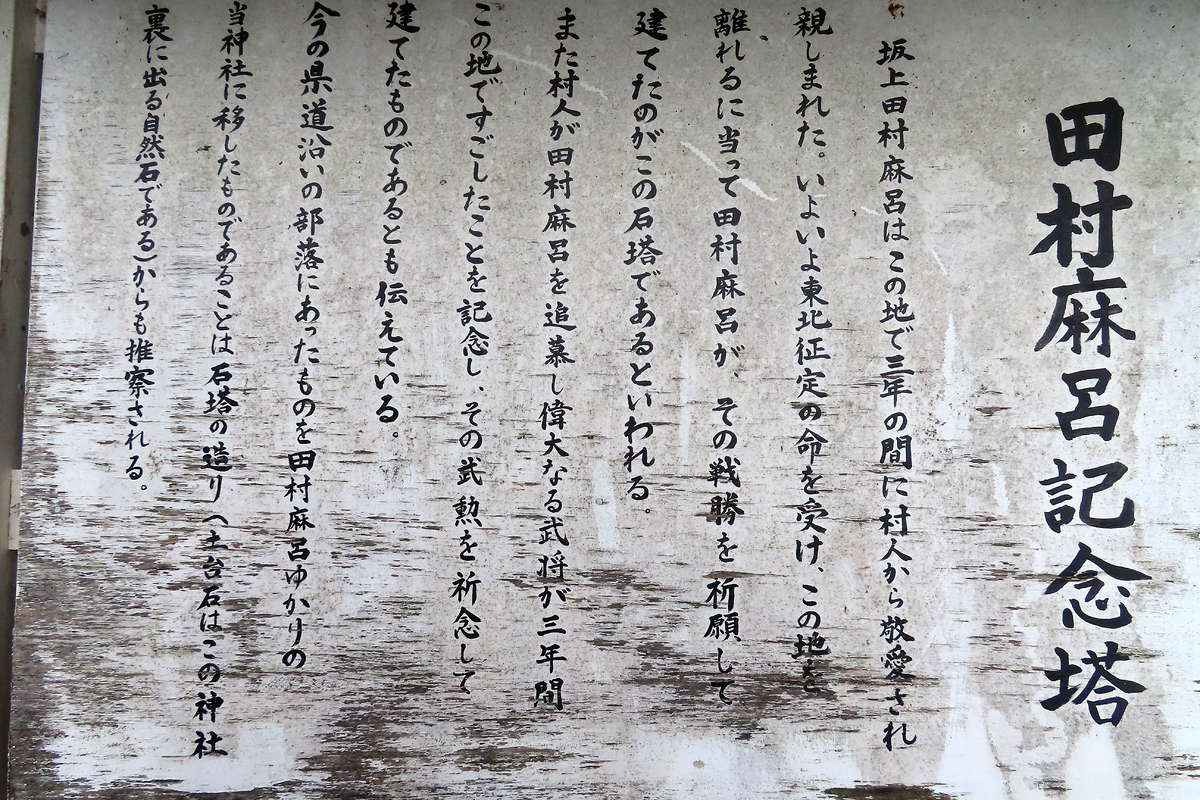 田村麻呂記念塔
坂上田村麻呂はこの地で三年の間に村人から敬愛され
親しまれた。いよいよ東北征定の命を受け、この地を
離れるに当って田村麻呂が、その戦勝を祈願して
建てたのがこの石塔であるといわれる。
また村人が田村麻呂を追慕し偉大なる武将が三年間
この地ですごしたことを記念し、その武勲を祈念して
建てたものであるとも伝えている。
今の県道沿いの部落にあったものを田村麻呂ゆかりの
当神社に移したものであることは石塔の造り(土台石はこの神社
裏に出る自然石である)からも推察される。